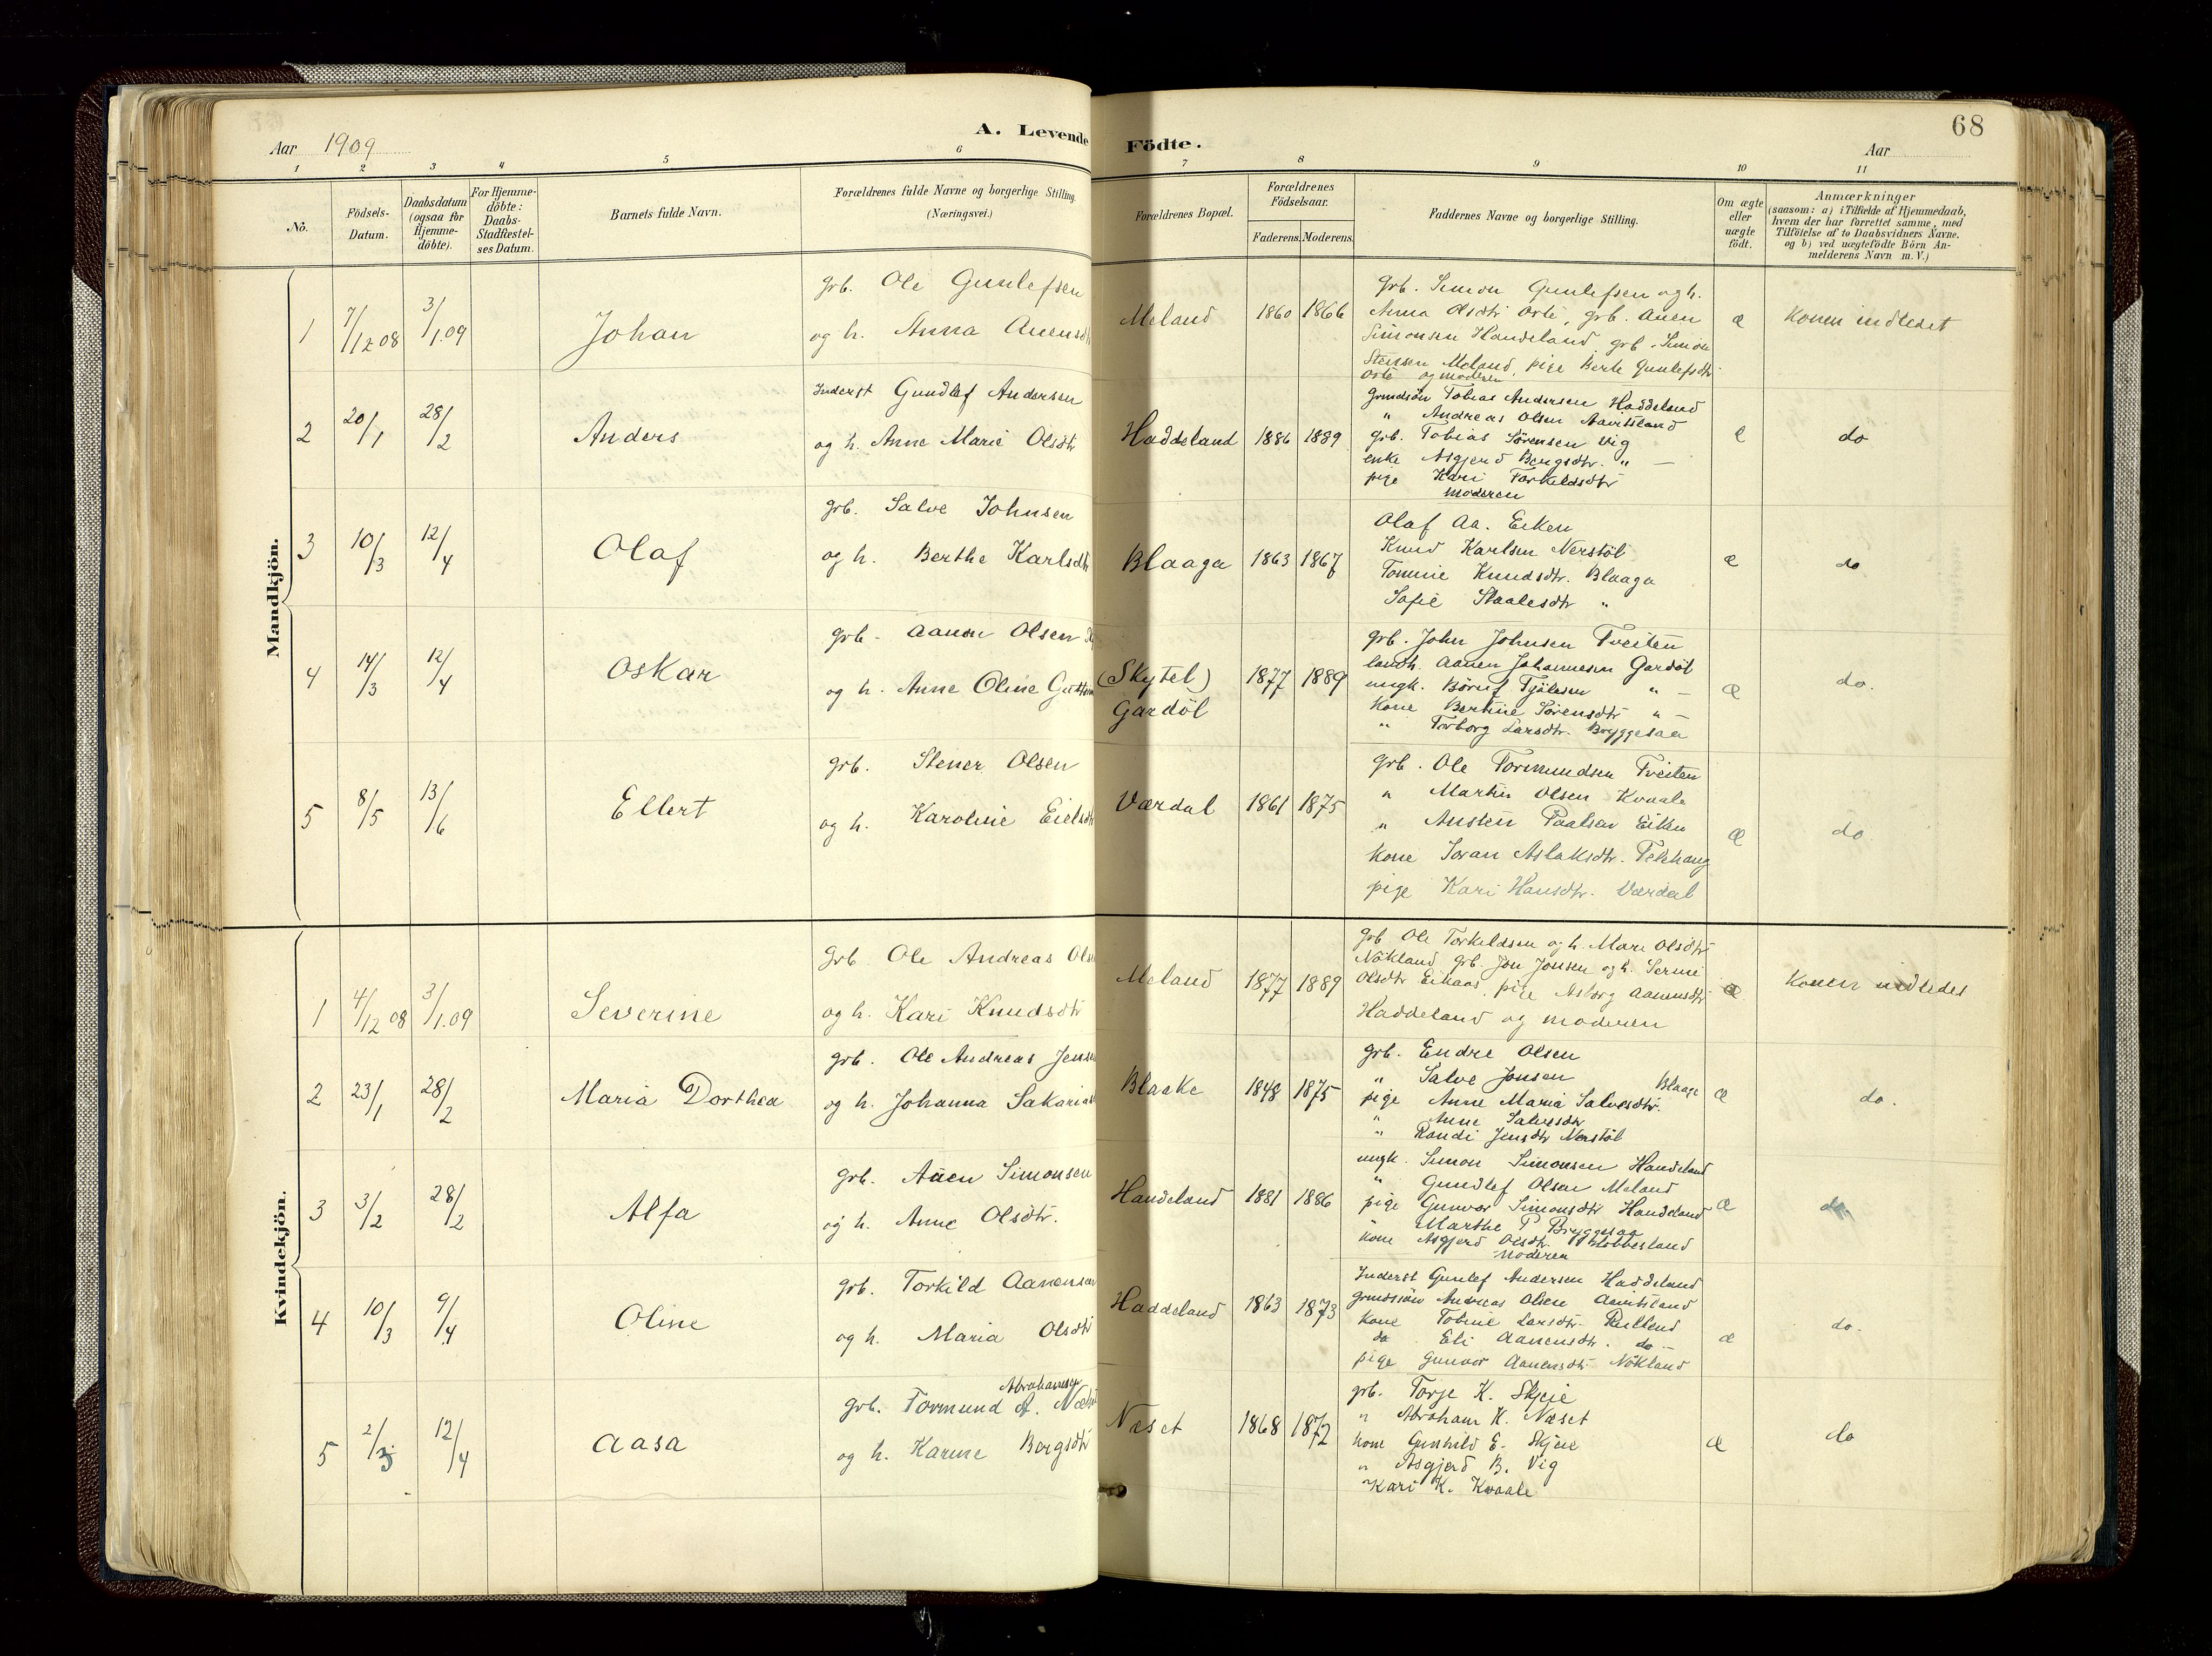 68
Aar 1909
A. Levende Födte.
Aar
1 2 3 4 5 6 7 8 9 10 11
No.
Födsels-Datum.
Daabsdatum (ogsaa for Hjemme-döbte).
For Hjemme-döbte: Daabs-Stadfæstel-ses Datum.
Barnets fulde Navn.
Forældrenes fulde Navne og borgerlige Stilling. (Næringsvei.)
Forældrenes Bopæl.
Forældrenes Födselsaar.
Faderens. Moderens.
Faddernes Navne og borgerlige Stilling.
Om ægte eller uægte födt.
Anmærkninger
(saasom: a) i Tilfælde af Hjemmedaab,
hvem der har forrettet samme, med
Tilföielse af to Daabsvidners Navne.
og b) ved uægtefödte Börn An-
melderens Navn m. V.)
Mandkjön.
1 7/12 08 3/1.09 Johan
grb. Ole Gunlefsen
og h. Anna Auensdt
Meland 1860 1866
grb. Simon Gunlefsen og h.
Anna Olsdtr Oste, grb. Auen
Simonsen Handeland grb. Simon
Stensen Meland, pige Berte Gunlefsdtr
Oste og moderen
æ Konen indledet
2 20/1 28/2 Anders
Inderst Gundlef Andersen
og h. Anne Marie Olsdtr
Haddeland 1886 1889
grundsön Tobias Andersen Haddeland
" Andreas Olsen Aavitsland
grb. Tobias Sørensen Vig
enke Asgjerd Bergsdtr. " —
pige Kari Torkildsdtr
moderen
e do
3 10/3 12/4 Olaf
grb. Salve Johnsen
og h. Berthe Karlsdt
Blaaga 1863 1867
Olaf Aa. Eiken
Knud Karlsen Nerstöl
Tomine Knudsdtr. Blaaga
Sofie Staalesdtr "
æ do
4 14/3 12/4 Oskar
grb. Aanon Olsen
og h. Anne Oline Guttorm
(Skytel)
Gardöl 1877 1889
grb. John Johnsen Tveiten
landh. Aanen Johannesen Gardöl
ungk. Böruf Tjölesen " —
Kone Bertine Sörensdtr " —
" Torborg Larsdtr. Bryggesaa
æ do.
5 8/5 13/6 Ellert
grb. Stener Olsen
og h. Karoline Eielsdt
Værdal 1861 1875
grb. Ole Tormundsen Tveiten
" Martin Olsen Kvaale
" Austen Paalsen Eiken
Kone Joran Aslaksdtr. Telehaug
pige Kari Hansdtr. Værdal
æ do
Kvindekjön.
1 4/12 08 3/1.09 Severine
grb. Ole Andreas Ols
og h. Kari Knudsdtr
Meland 1877 1889
grb Ole Torkeldsen og h. Mari Olsdtr
Nökland grb. Jon Jonsen og h. Serine
Olsdtr Eikaas, pige Asborg Aanensdtr
Haddeland og moderen
æ Konen indledes
2 23/1 28/2 Maria Dorthea
grb. Ole Andreas Jens
og h. Johanna Sakarias
Blaake 1848 1875
grb. Endre Olsen
" Salve Jonsen Blaage
pige Anne Maria Salvesdtr.
" Anne Salvesdtr
" Randi Jensdtr Nerstöl
æ do.
3 3/2 28/2 Alfa
grb. Auen Simonsen
og h. Anne Olsdtr.
Handeland 1881 1886
ungk. Simon Simonsen Handeland
" Gundlef Olsen Meland
pige Gunvor Simonsdtr Handeland
" Marthe P Bryggesaa
kone Asgjerd Olsdtr. Klobbesland
moderen
æ do
4 10/3 9/4 Oline
grb. Torkild Aanensen
og h. Maria Olsdtr
Haddeland 1863 1873
Inderst Gunlef Andersen Haddeland
grundsön Andreas Olsen Aavitsland
kone Tobine Larsdtr.
do Eli Aanensdtr. do —
pige Gunvor Aanensdtr Nökland
æ do.
5 2/3 12/4 Aasa
Abrahamsen
grb. Tormund A. Næs
og h. Karine Bergsdtr
Næset 1868 1872
grb. Torje K. Skjeie
" Abraham K. Næset
kone Gunhild E. Skjeie
" Asgjerd B. Vig
" Kari K. Kvaale
æ do